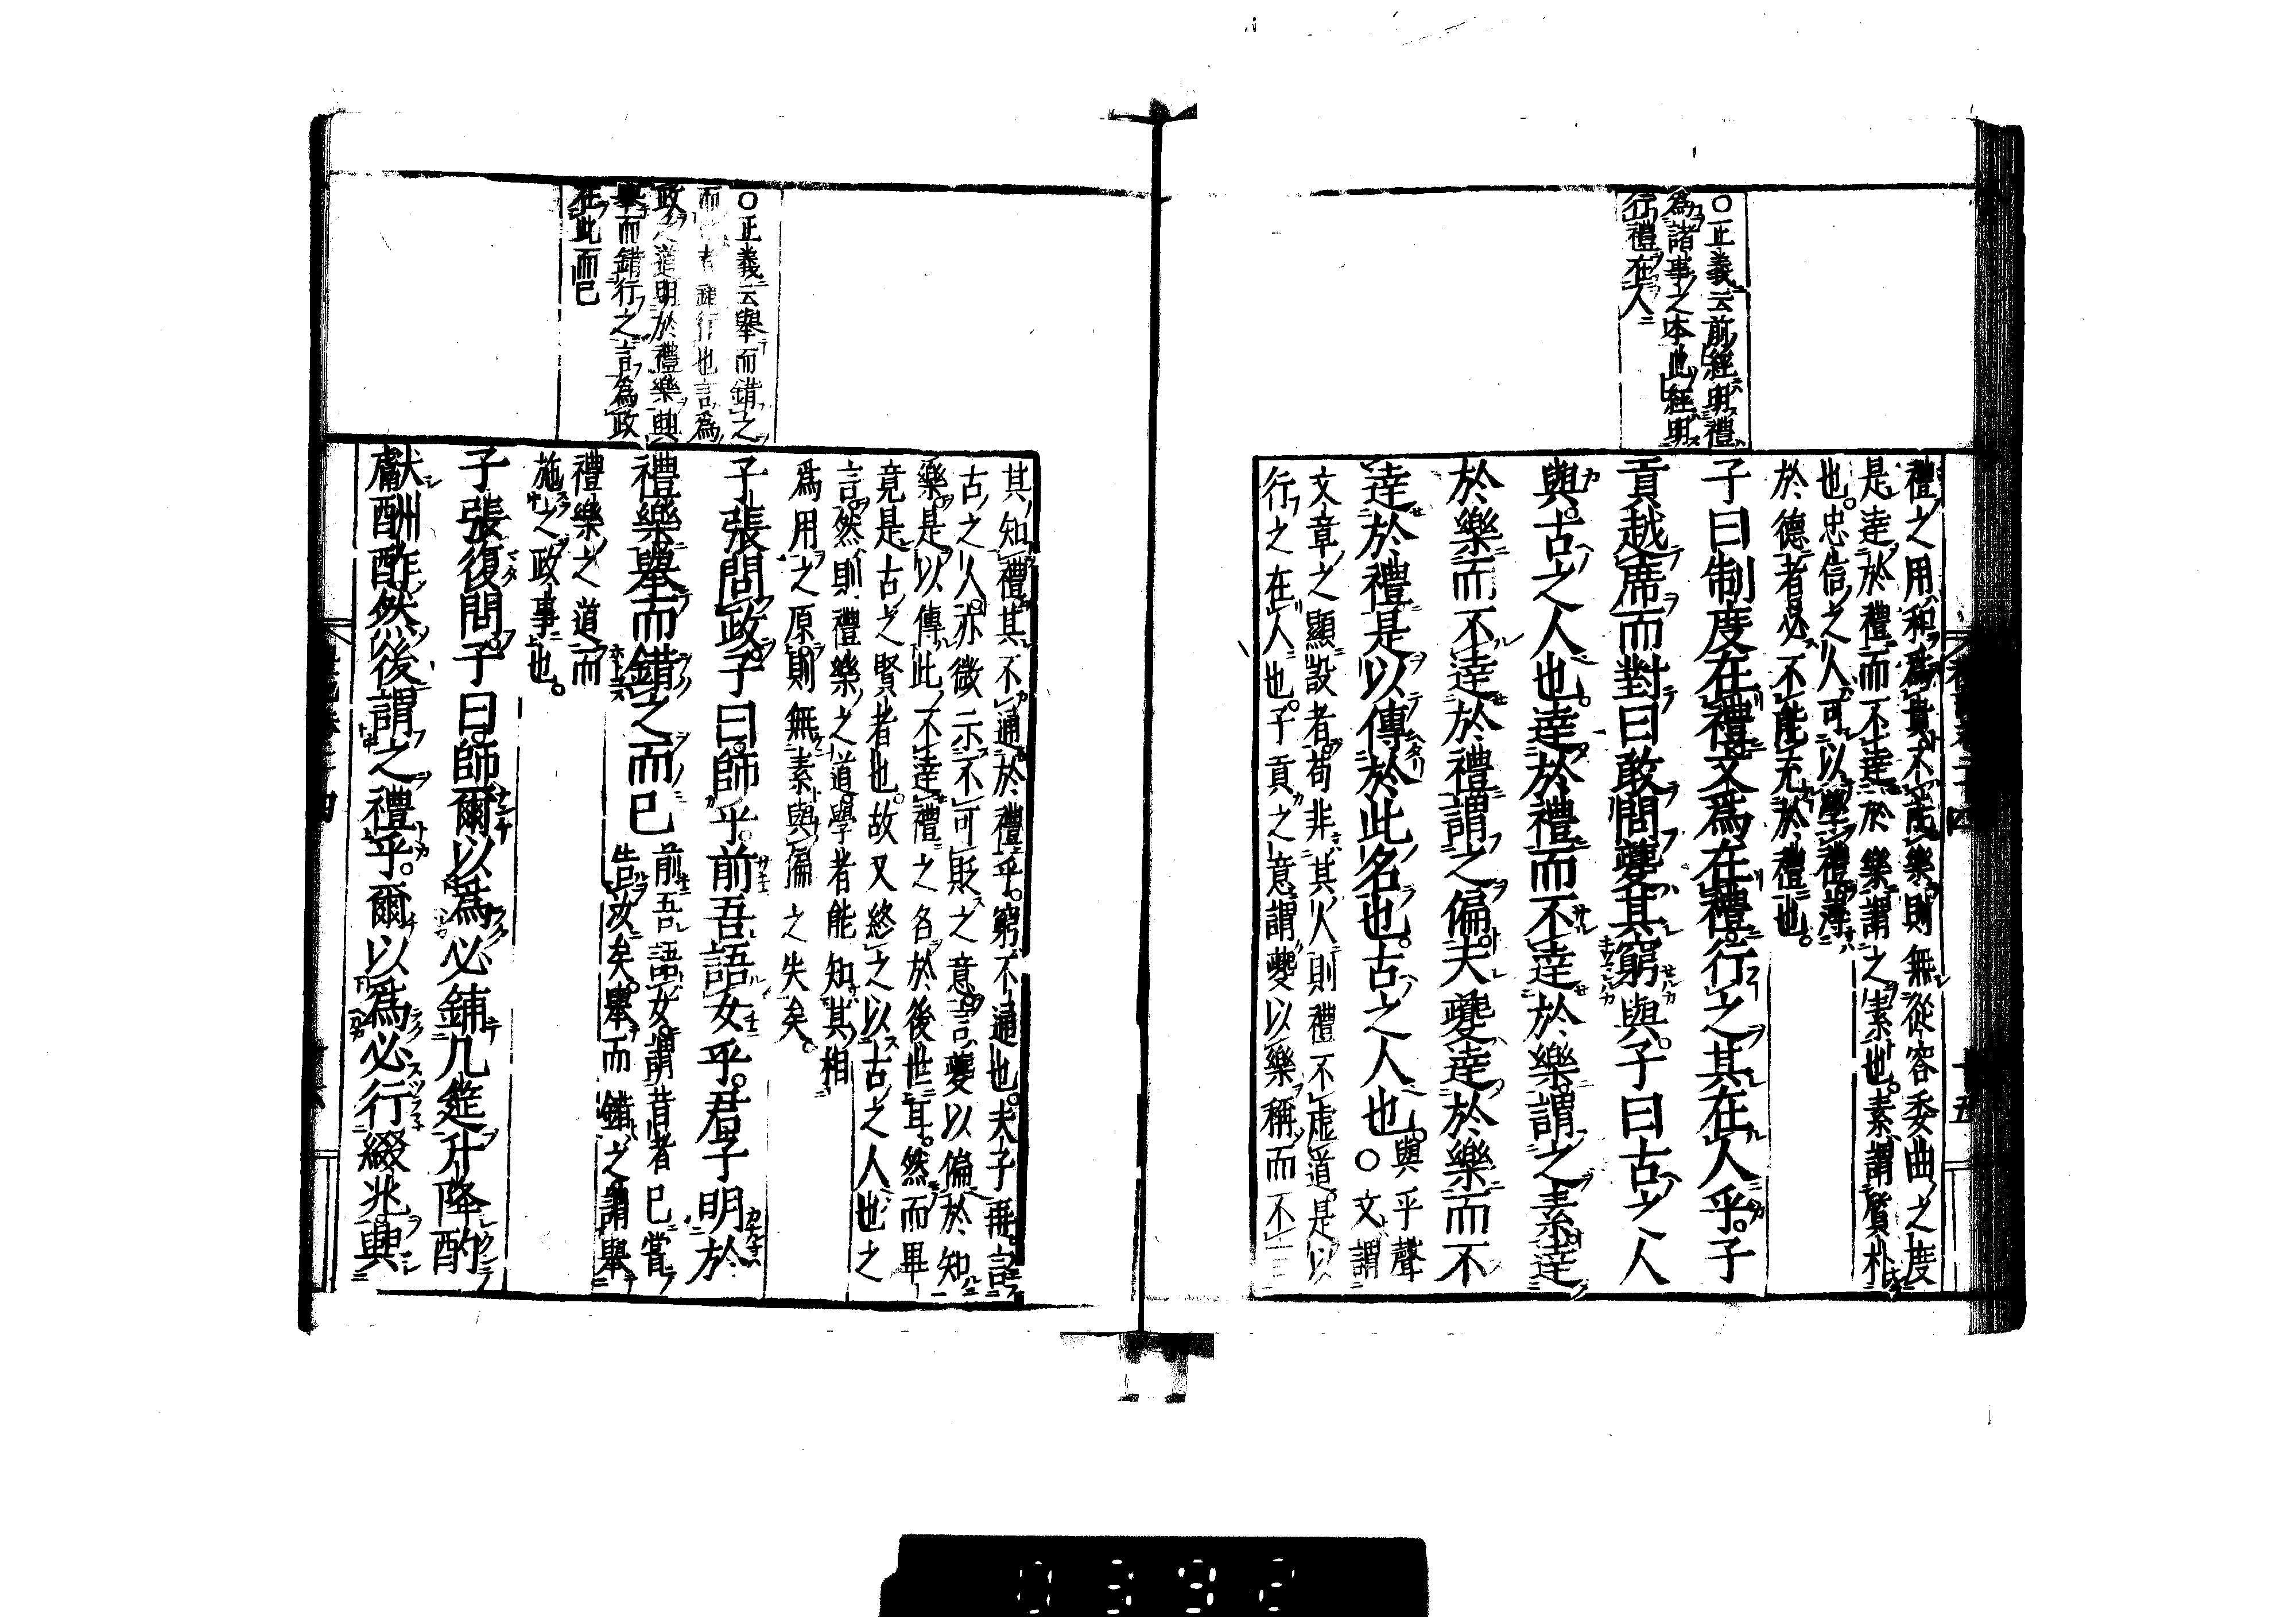 ○正義云前經明禮
爲諸事之本此經明
行禮在人
禮之用和爲貴不能樂則無從容委曲之度
是達於禮而不達於樂謂之素也素謂質朴
也忠信之人可以學禮薄
於德者必不能充於禮也
子曰制度在禮文爲在禮行之其在人乎子
貢越席而對曰敢問夔其窮與子曰古之人
與古之人也達於禮而不達於樂謂之素達
於樂而不達於禮謂之偏夫夔達於樂而不
達於禮是以傳於此名也古之人也與乎聲○文謂
文章之顯設者苟非其人則禮不虛道是以
行之在人也子貢之意謂夔以樂稱而不
○正義云舉而錯之
行也言爲
政之道明於禮樂興
舉而錯行之言爲政
在此而已
其知禮其不通於禮乎窮不通也夫子再言
古之人亦微示不可貶之意言夔以偏於知
樂是以傳此不達禮之名於後世耳然而畢
竟是古之賢者也故又終之以古之人也之
言然則禮樂之道學者能知其相
爲用之原則無素與偏之失矣
子張問政子曰師乎前吾語女乎君子明於
禮樂舉而錯之而已前吾語女謂昔者已嘗告汝矣舉而錯之謂舉
禮樂之道而
施之政事也
子張復問子曰師爾以爲必鋪几筵升降酌
獻酬酢然後謂之禮乎爾以爲必行綴兆興
0392